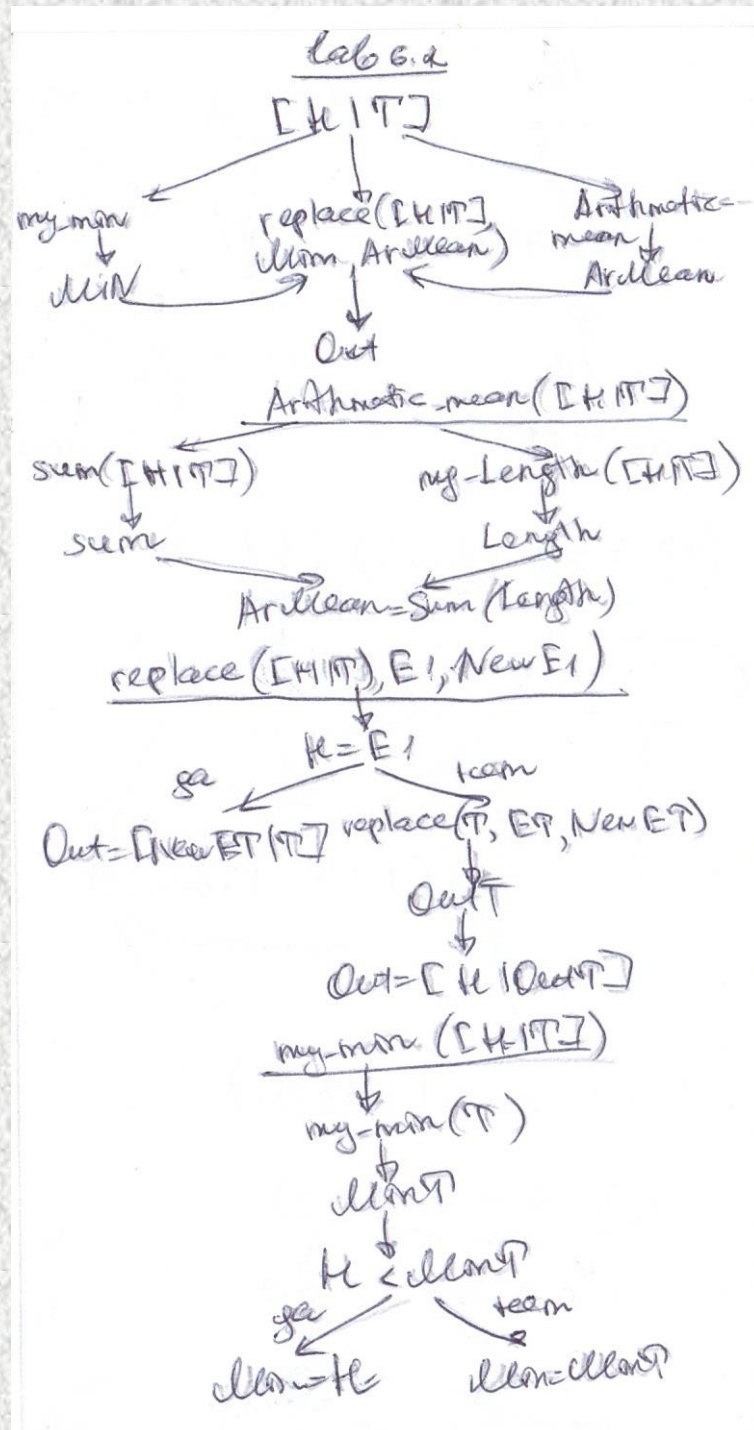 Lab 6.2
[H|T]
my_min replace([H|T], Arithmatic-
Min, ArMean) mean
MiN ArMean
Out
Arithmatic_mean([H|T])
sum([H|T]) my-Length([H|T])
sum Length
ArMean=Sum(Length)
replace([H|T), E1, NewE1)
H=E1
да нет
Out=[NewET|T] replace(T, ET, NewET)
OutT
Out=[H|OutT]
my-min([H|T])
my-min(T)
MinT
H<MinT
да нет
Min=H Min=MinT